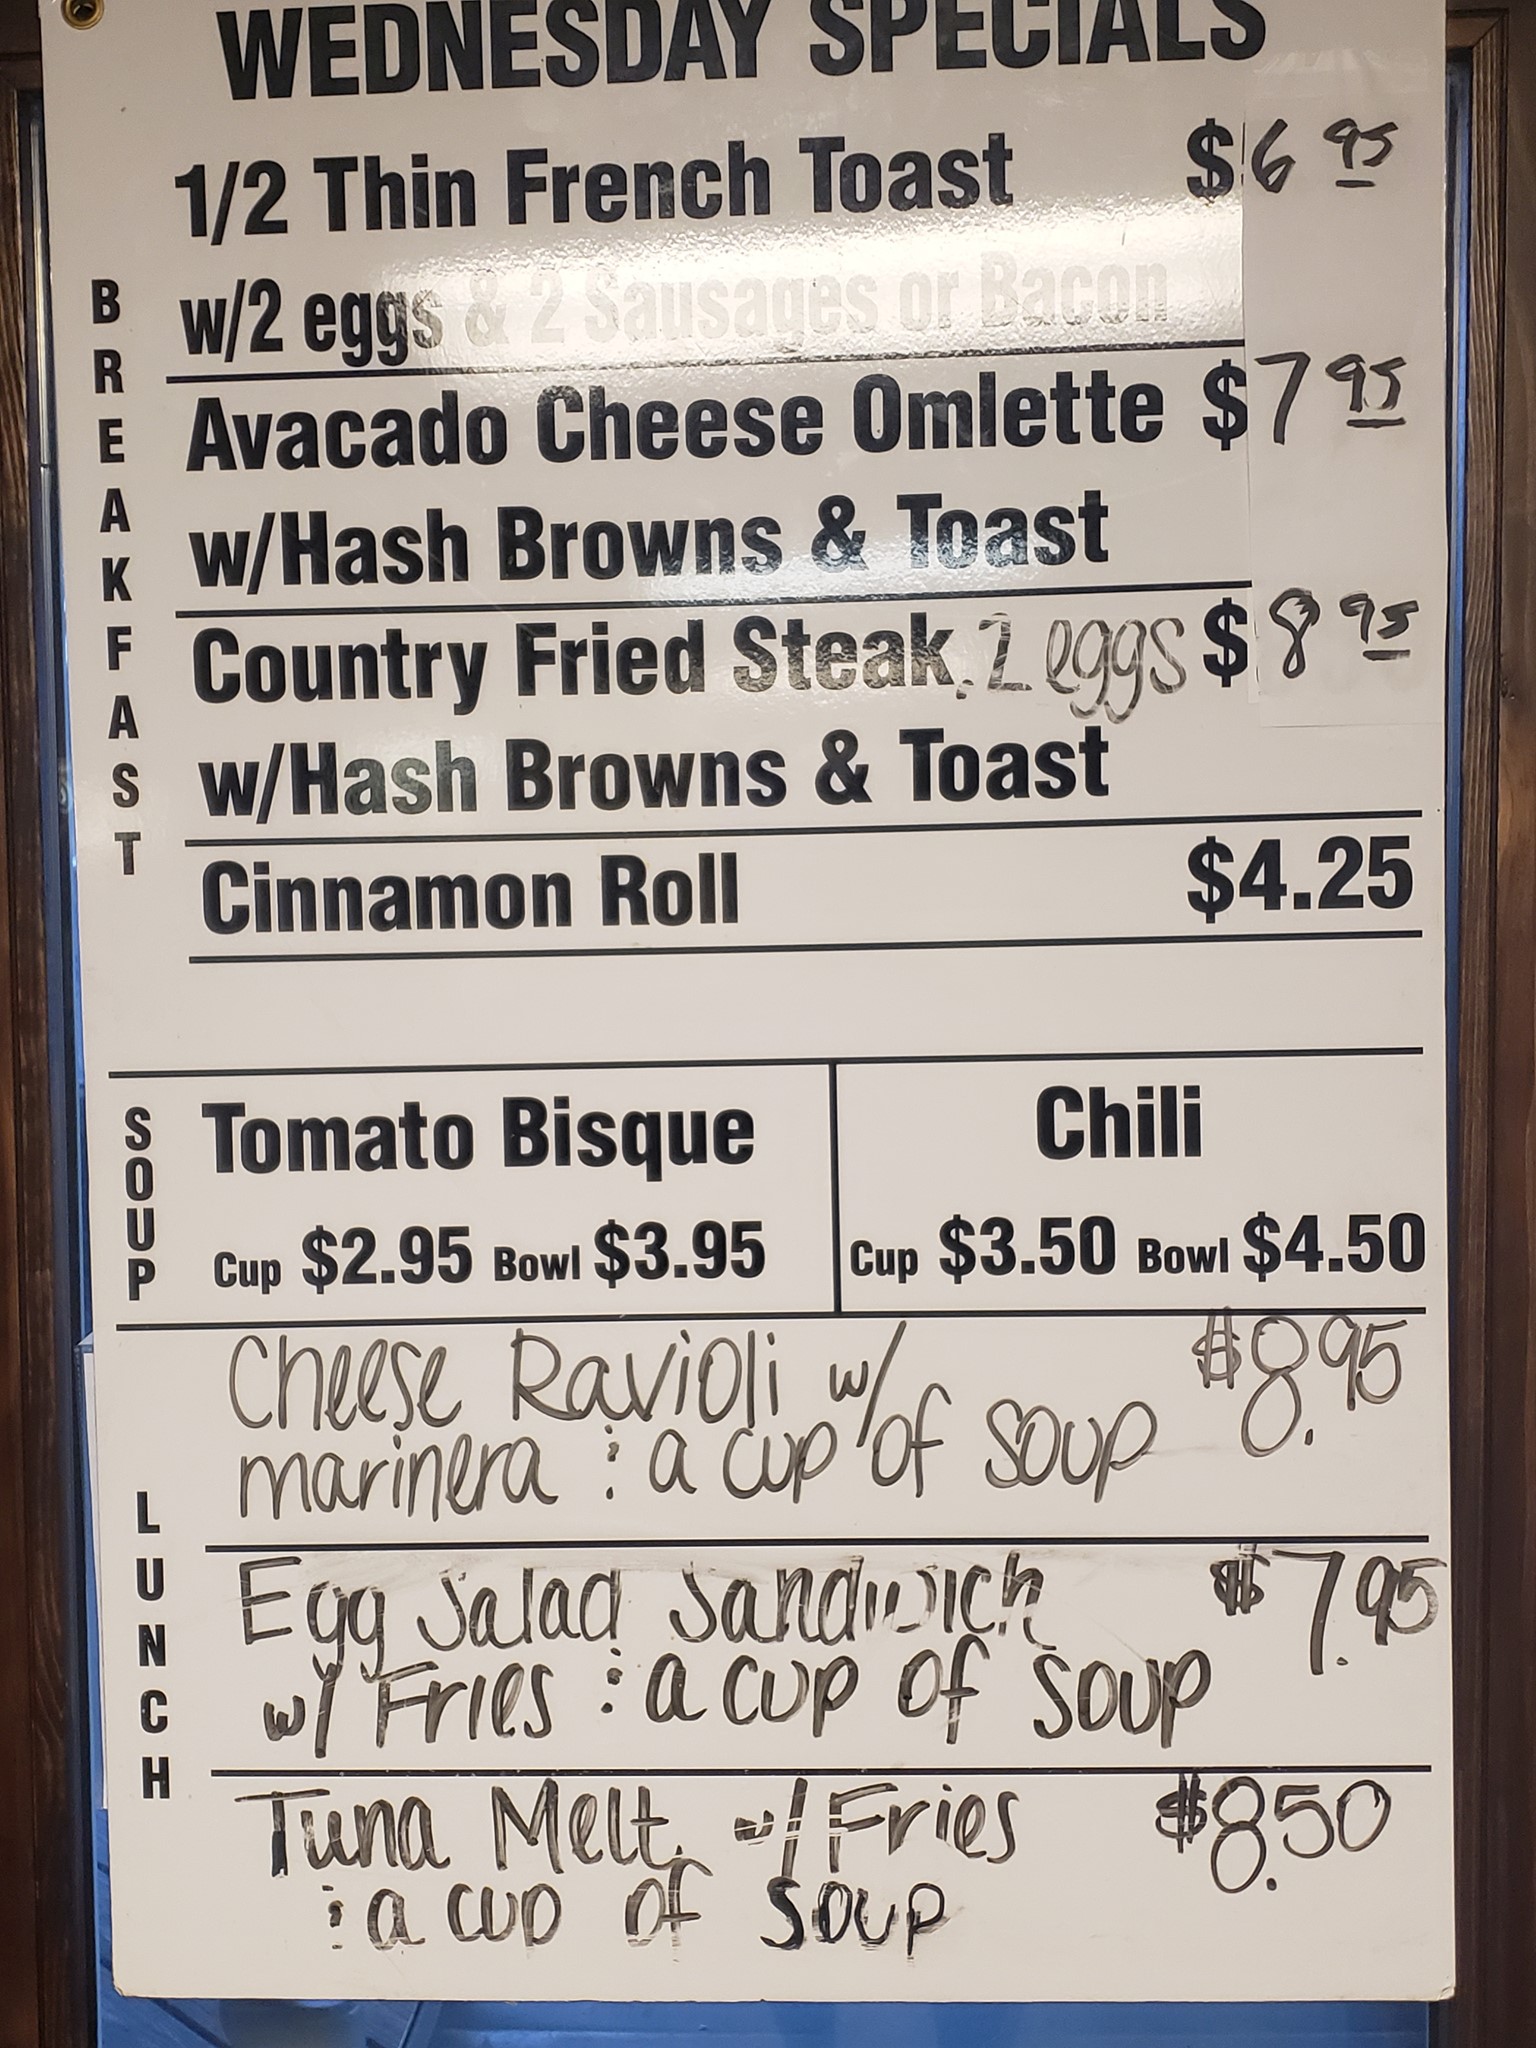 WEDNESDAY SPECIALS
1/2 Thin French Toast $6 95
w/2 eggs & 2 Sausages or Bacon
Avacado Cheese Omlette $7 95
w/Hash Browns & Toast
Country Fried Steak. 2 eggs $8 95
w/Hash Browns & Toast
Cinnamon Roll $4.25
BREAKFAST
SOUP
Tomato Bisque
Cup $2.95 Bowl $3.95
Chili
Cup $3.50 Bowl $4.50
LUNCH
Cheese Ravioli w/ $8.95
marinera & a cup of soup
Egg Salad Sandwich $7.95
w/ Fries & a cup of soup
Tuna Melt w/ Fries $8.50
& a cup of soup